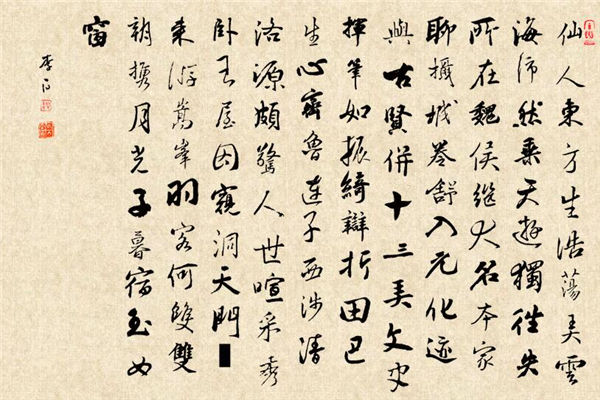 仙人東方生浩蕩弄雲
海沛然乘天遊獨往失
所在魏侯繼大名本家
聊攝城卷舒入元化迹
與古賢併十三弄文史
揮筆如振綺辯折田巴
生心齊魯連子西涉清
洛源頗驚人世喧采秀
卧王屋因窺洞天門
來游嵩峯羽客何雙雙
朝攜月光子暮宿玉女
窗
李